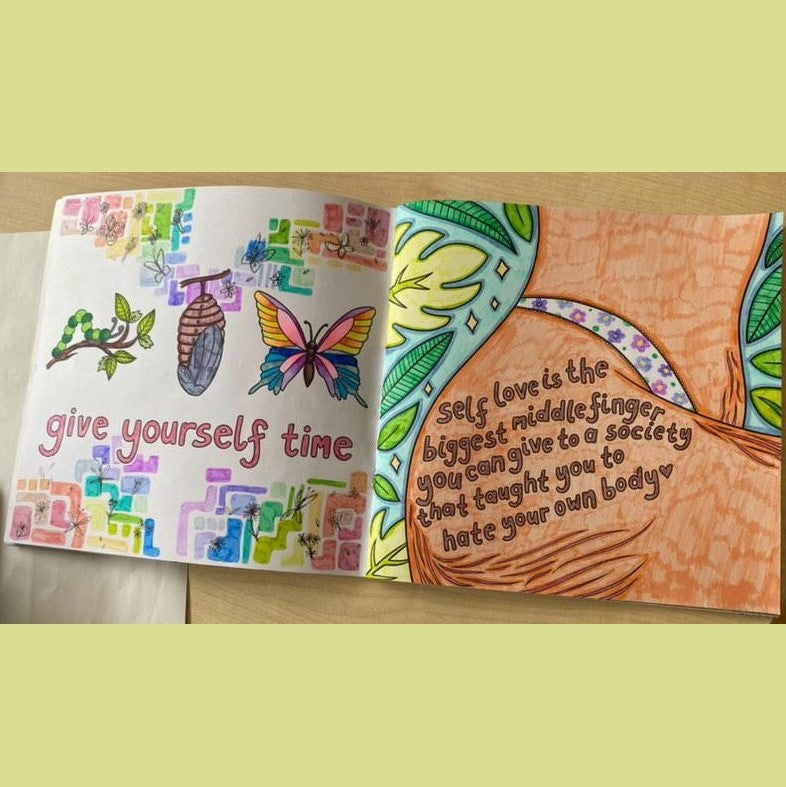 give yourself time
Self love is the
biggest middlefinger
you can give to a society
that taught you to
hate your own body♥